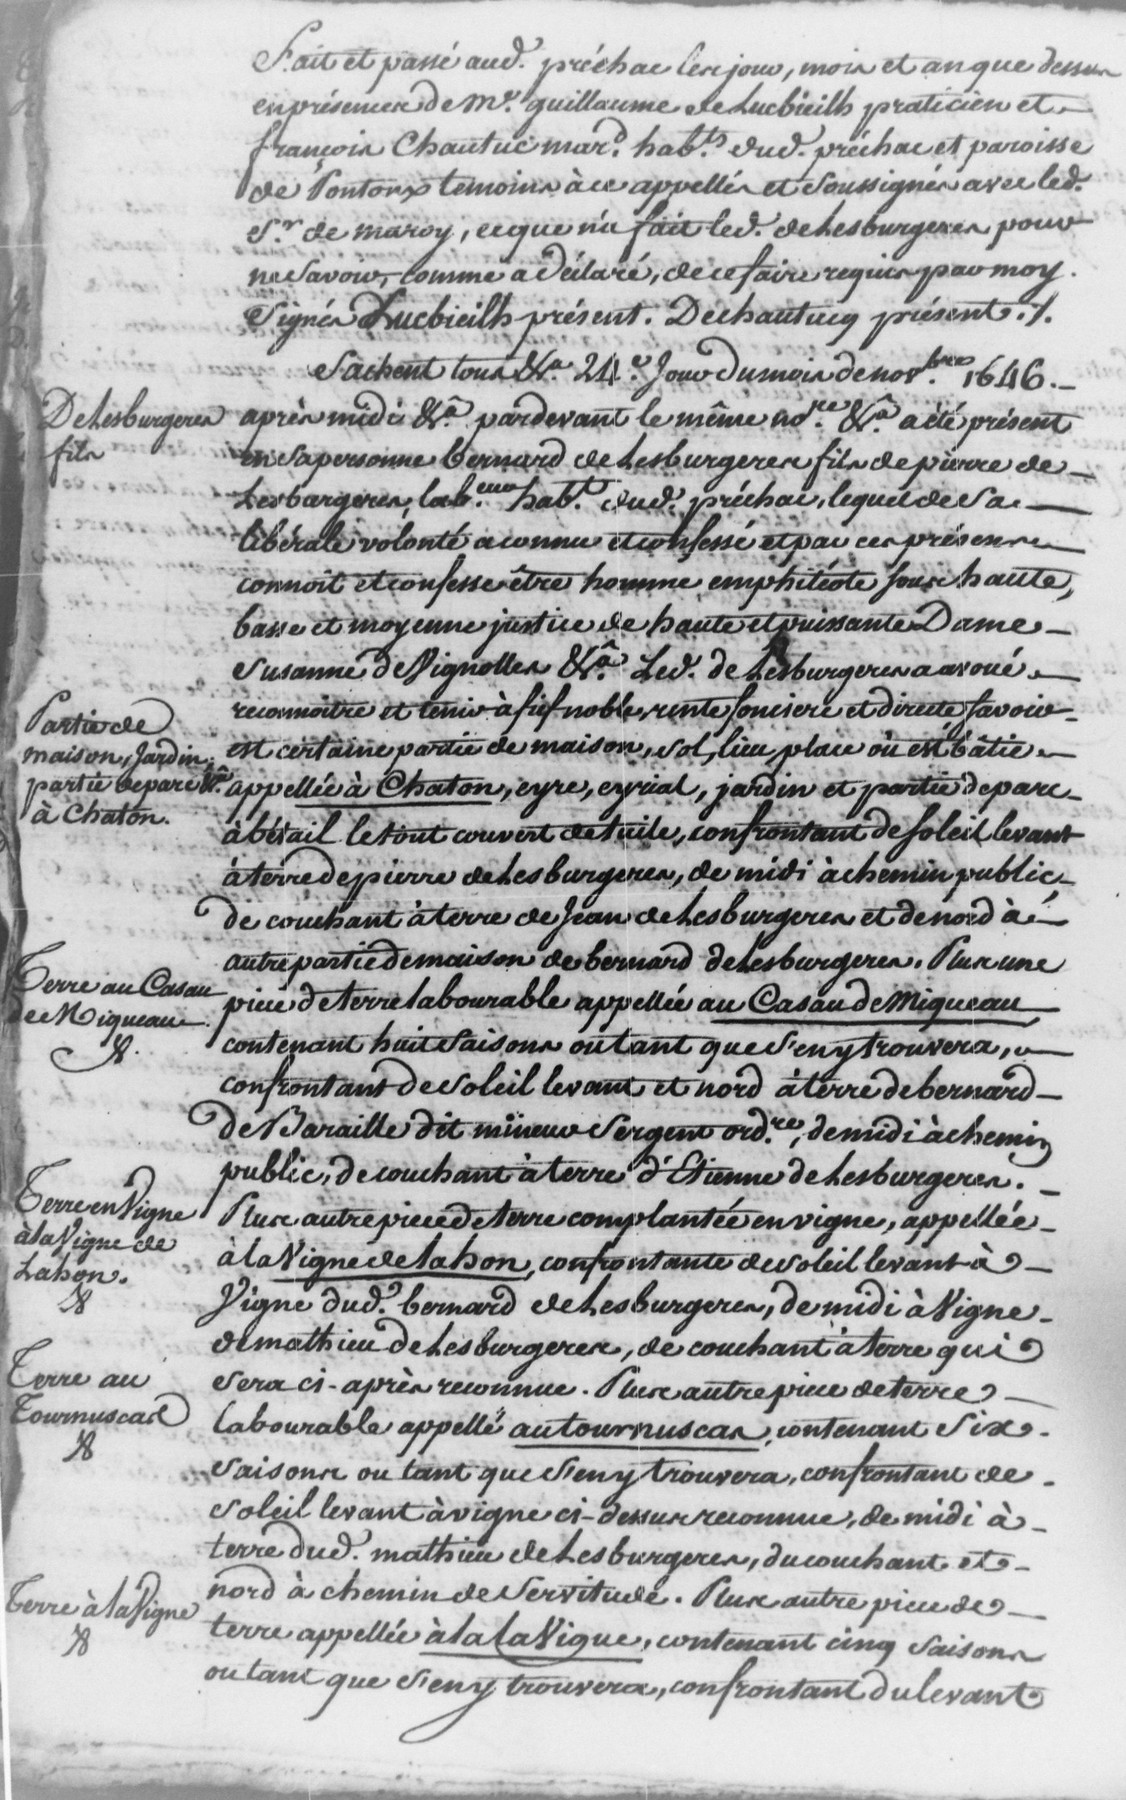 Fait et passé aud. préchac les jour, mois et an que dessus
en présence de Mr. guillaume de Lucbieilh praticien et
françois Chautuc mard. habts. dud. préchac et paroisse
de Pontonx temoins à ce appellés et soussignés avec led.
Sr. de maroy, ce que n'a fait led. deLesburgeres pour
ne savoir, comme a déclaré, de ce faire requis par moy.
Signés Lucbieilh présent. Dechautucq présent ./.
Sachent tous &a. 24e. Jour du mois de novbre. 1646.
DeLesburgeres
fils
après midi &a. pardevant le même nore. &a. a été présent
en sa personne bernard deLesburgeres fils de pierre de
Lesburgeres, labeur. habt. dud. préchac, lequel de sa
libérale volonté a connu et confessé et par ces présentes
connoit et confesse être homme emphitéote sous haute,
basse et moyenne justice de haute et puissante Dame
Susanne de Vignolles &a. Led. deLesburgeres a avoué
reconnoitre et tenir à fief noble, rente fonciere et directe savoir
Partie de
maison, Jardin,
partie de parc &a.
à Chaton.
est certaine partie de maison, sol, lieu, place où est bâtie
appellée à Chaton, eyre, eyrial, jardin et partie de parc
à bétail le tout couvert de tuile, confrontant de soleil levant
à terre de pierre deLesburgeres, de midi à chemin public
de couchant à terre de Jean deLesburgeres et de nord à
autre partie de maison de bernard deLesburgeres. Plus une
Terre au Casau
de Miqueau
&.
piece de terre labourable appellée au Casau de Miqueau
contenant huit saisons ou tant que s'en y trouvera,
confrontant de soleil levant et nord à terre de bernard
de Baraille dit mineur sergent ordre., de midi à chemin
public, de couchant à terre d'Etienne deLesburgeres.
Terre en Vigne
à la Vigne de
Lahon.
&
Plus autre piece de terre complantée en vigne, appellée
à la Vigne de lahon, confrontante de soleil levant à
Vigne dud. bernard deLesburgeres, de midi à Vigne
de mathieu deLesburgeres, de couchant à terre qui
Terre au
Tournuscas
&
sera ci-après reconnue. Plus autre piece de terre
labourable appellé au tournuscas, contenant six
saisons ou tant que s'en y trouvera, confrontant de
soleil levant à vigne ci-dessus reconnue, de midi à
terre dud. mathieu deLesburgeres, du couchant et
Terre à la Vigne
&
nord à chemin de servitude. Plus autre piece de
terre appellée à la la Vigne, contenant cinq saisons
ou tant que s'en y trouvera, confrontant du levant